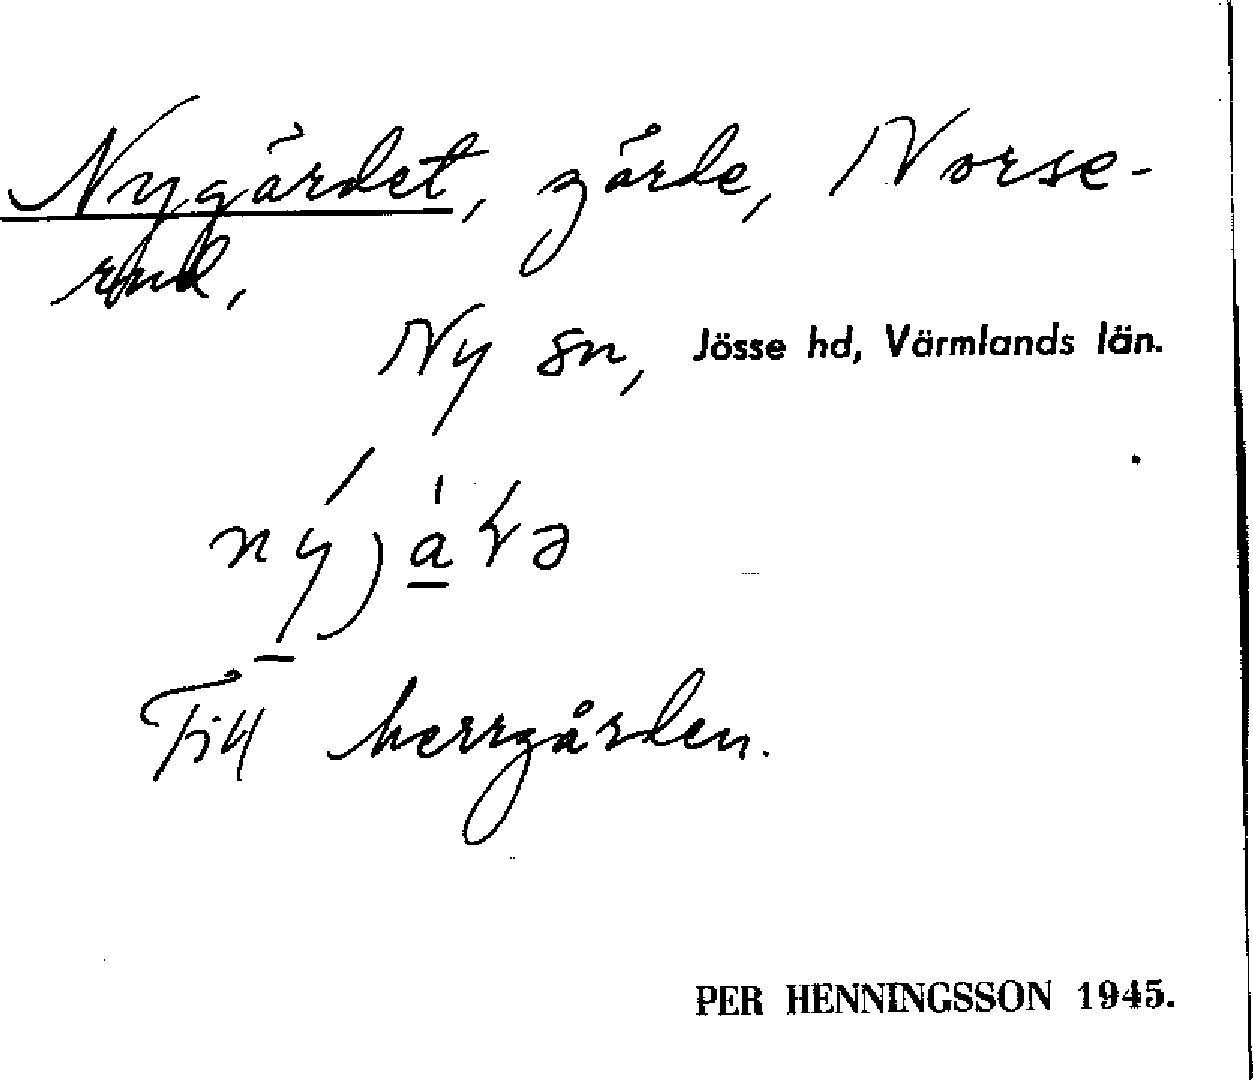 Nygärdet, gärde, Norse-
rud,
Ny sn, Jösse hd, Värmlands län.
Till herrgården.
PER HENNINGSSON 1945.